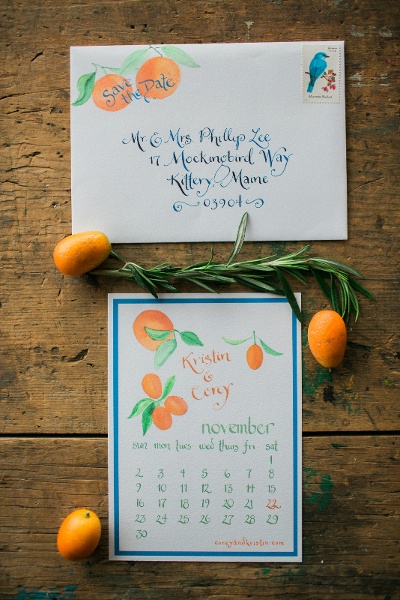 Save
the Date
Mr & Mrs Phillip Lee
17 Mockingbird Way
Kittery, Maine
03904
Kristin
&
Corey
november
sun mon tues wed thurs fri sat
1
2 3 4 5 6 7 8
9 10 11 12 13 14 15
16 17 18 19 20 21 22
23 24 25 26 27 28 29
30
coreyandkristin.com